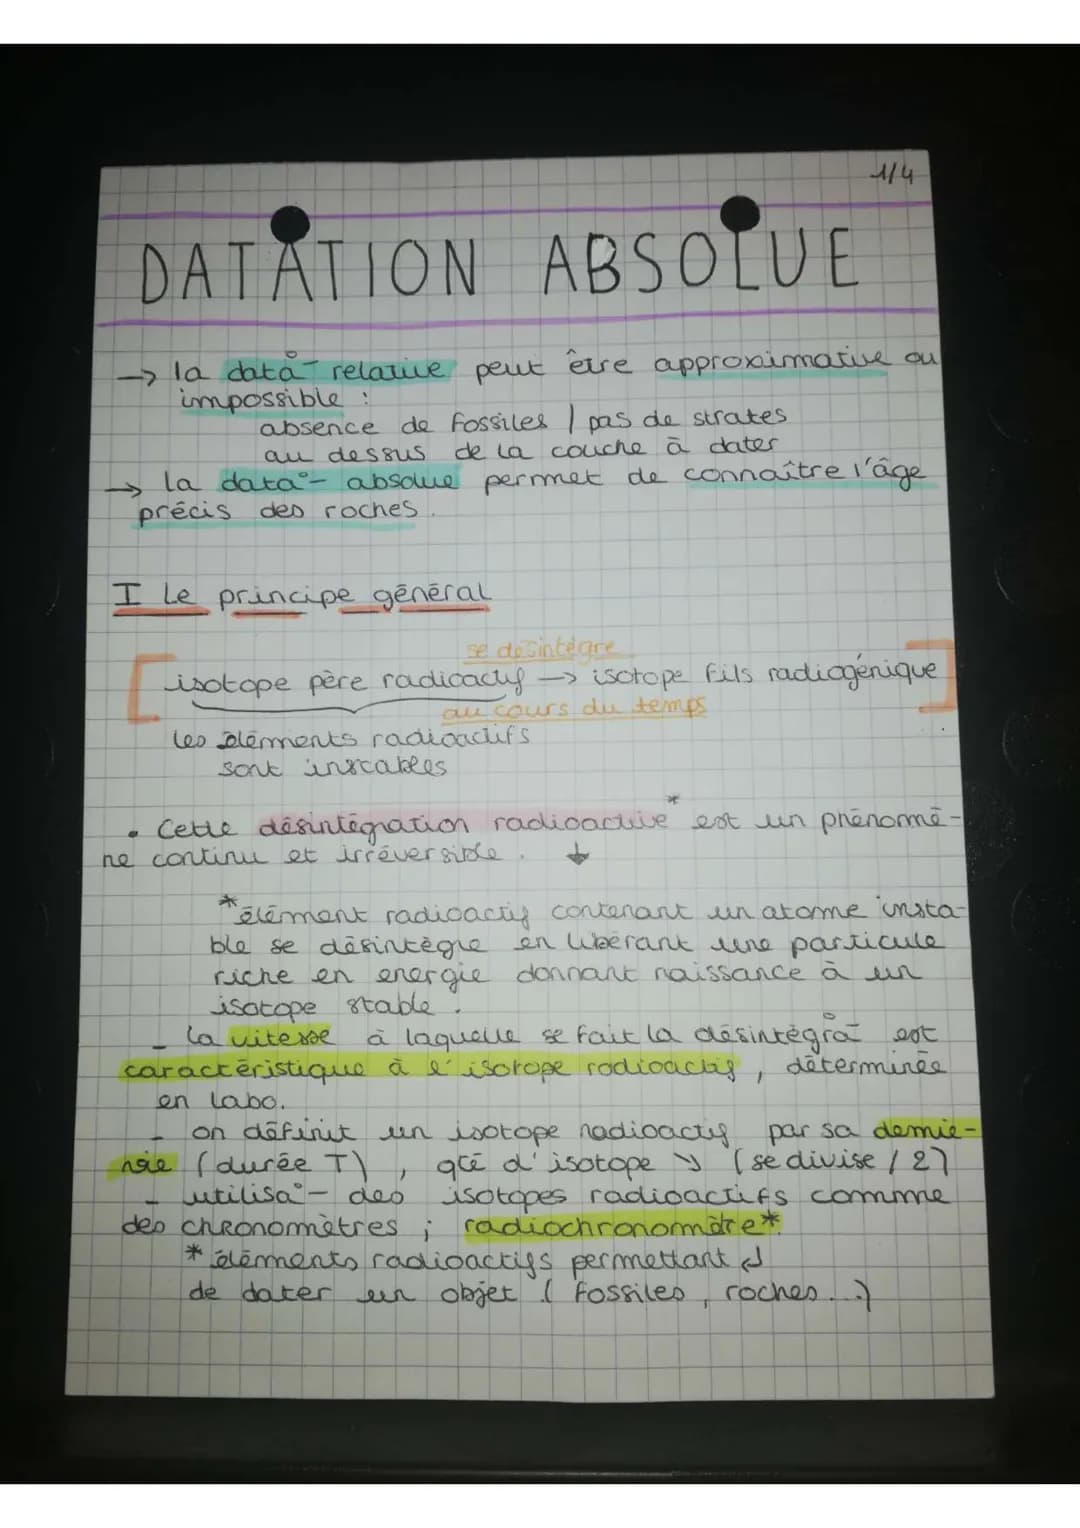 1/4
DATATION ABSOLUE
→ la data°- relative peut être approximative ou
impossible :
absence de fossiles / pas de strates
au dessus de la couche à dater
→ la data°- absolue permet de connaître l'âge
précis des roches.
I Le principe général
se désintègre
[isotope père radioactif → isotope fils radiogénique]
au cours du temps
les éléments radioactifs
sont instables
• Cette désintégration radioactive* est un phénomè-
ne continu et irréversible. ↓
*élément radioactif contenant un atome insta-
ble se désintègre en libérant une particule
riche en energie donnant naissance à un
isotope stable.
- la vitesse à laquelle se fait la désintégra°- est
caractéristique à l'isotope radioactif, déterminée
en labo.
- on définit un isotope radioactif par sa demie-
vie (durée T), qté d'isotope ↘ (se divise / 2)
- utilisa°- des isotopes radioactifs comme
des chronomètres ; radiochronomètre*.
* éléments radioactifs permettant ↲
de dater un objet (fossiles, roches...)